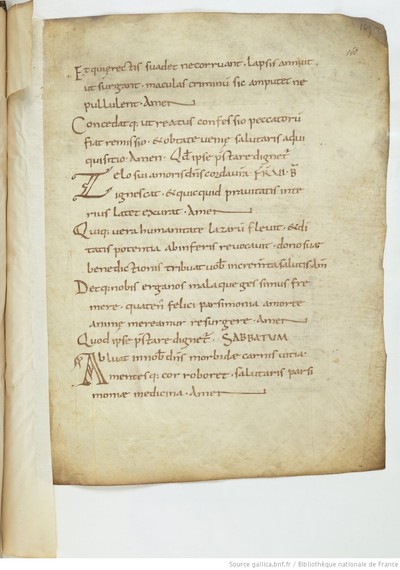 Et qui erectis suadet ne corruant · Lapsis annuat
ut surgant · maculas criminū sic amputet ne
pullulent · Amen
Concedatq; ut reatus confessio peccatorū
fiat remissio · & obtate venię salutaris adqui
quisitio · Amen · Qd ipse p̄stare dignet̄
Zelo sui amoris dn̄s corda v̄ra · FR VI B
ignescat · & quicquid pravitatis inte
rius Latet exurat · Amen
Quiq; vera humanitate Lazarū flevit · & di
tatis potentia ab inferis revocavit · dono suae
benedictionis tribuat vob incrementa salutis am̄
Detq; nobis erga nos mala que gessimus fre
mere · quaten felici parsimonia a morte
animę mereamur resurgere · Amen
Quod ipse p̄stare dignet̄ · SABBATUM
Abluat in nob dn̄s morbidae carnis vitia
mentesq; cor roboret · salutaris parsi
moniae medicina · Amen
Source gallica.bnf.fr / Bibliothèque nationale de France